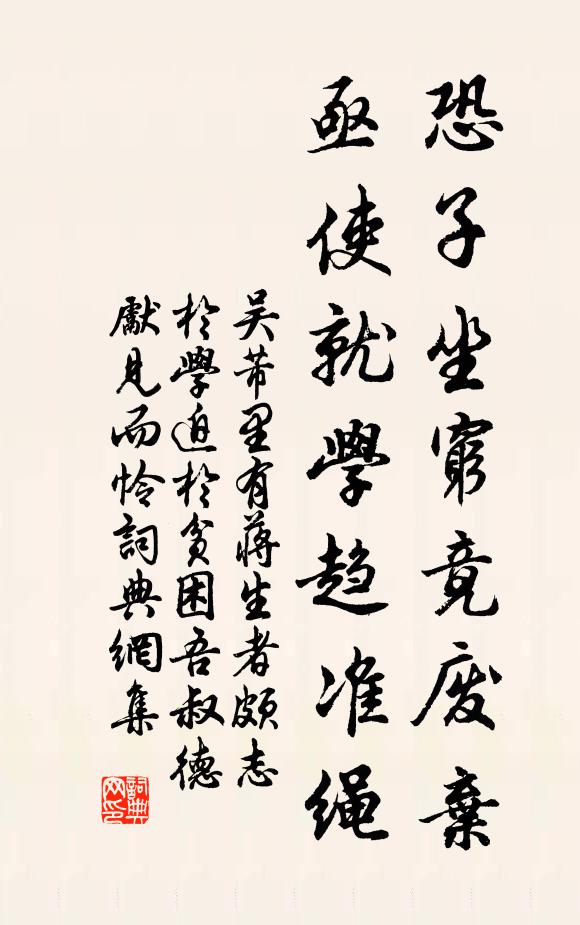 恐子坐窮竟廢棄
亟使就學趋准绳
吴芾里有蔣生者頗志
於學迫於貧困吾叔德
獻見而怜詞典網集
詞典网印